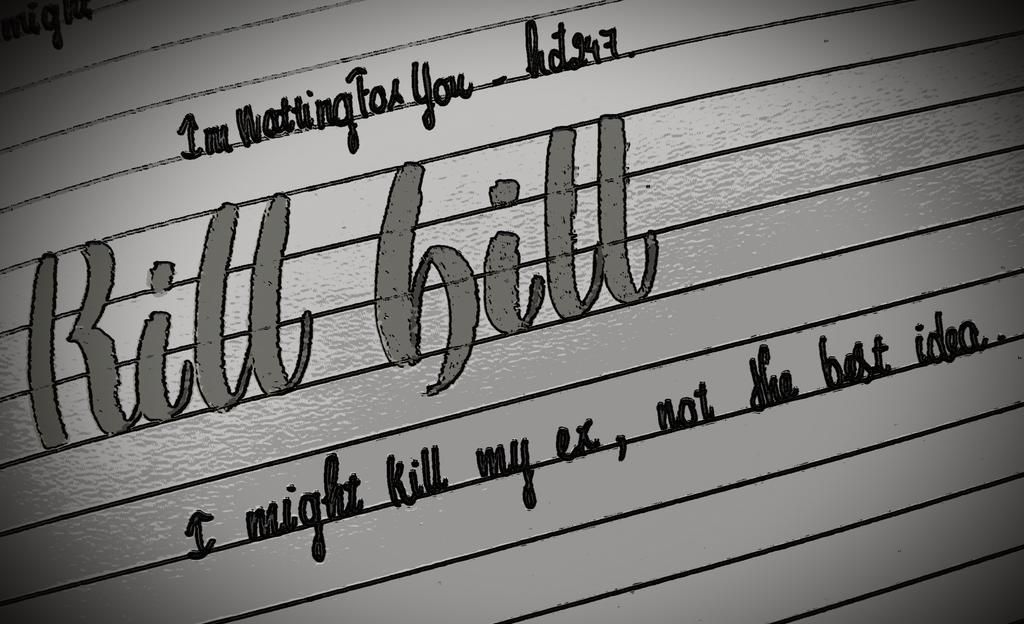 might
I'm Waiting For You - hd247.
Kill bill
I might kill my ex, not the best idea.